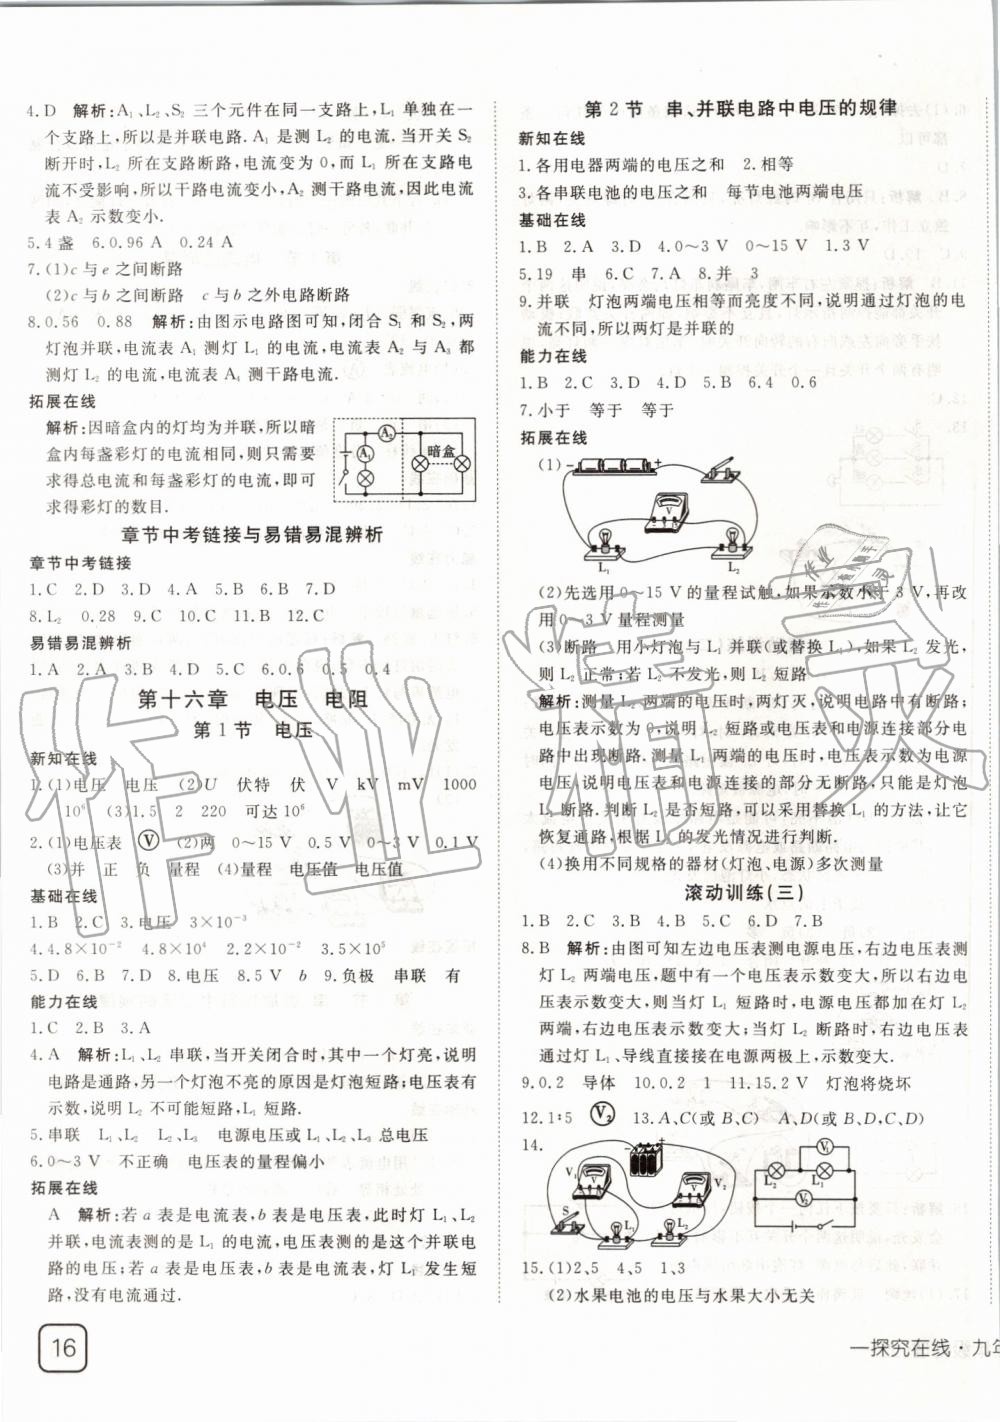 4.D 解析:A₁、L₂、S₂ 三个元件在同一支路上,L₁ 单独在一
个支路上,所以是并联电路.A₁ 是测 L₂ 的电流.当开关 S₂
断开时,L₂ 所在支路断路,电流变为 0,而 L₁ 所在支路电
流不受影响,所以干路电流变小,A₂ 测干路电流,因此电流
表 A₂ 示数变小.
5.4 盏 6.0.96 A 0.24 A
7.(1)c 与 e 之间断路
(2)c 与 b 之间短路 c 与 b 之外电路断路
8.0.56 0.88 解析:由图示电路图可知,闭合 S₁ 和 S₂,两
灯泡并联,电流表 A₁ 测灯 L₁ 的电流,电流表 A₂ 与 A₃ 都
测灯 L₂ 的电流,电流表 A 测干路电流.
拓展在线
解析:因暗盒内的灯均为并联,所以暗
盒内每盏彩灯的电流相同,则只需要
求得总电流和每盏彩灯的电流,即可
求得彩灯的数目.
A₂
A₁
暗盒
章节中考链接与易错易混辨析
章节中考链接
1.C 2.D 3.D 4.A 5.B 6.B 7.D
8.L₂ 0.28 9.C 10.C 11.B 12.C
易错易混辨析
1.A 2.A 3.B 4.D 5.C 6.0.6 0.5 0.4
第十六章 电压 电阻
第 1 节 电压
新知在线
1.(1)电压 电压 (2)U 伏特 伏 V kV mV 1000
10⁶ (3)1.5 2 220 可达 10⁶
2.(1)电压表 V (2)两 0～15 V 0.5 V 0～3 V 0.1 V
(3)并 正 负 量程 (4)量程 电压值 电压值
基础在线
1.B 2.C 3.电压 3×10⁻³
4.4.8×10⁻² 4.8×10⁴ 2.2×10⁻² 3.5×10⁵
5.D 6.B 7.D 8.电压 8.5 V b 9.负极 串联 有
能力在线
1.C 2.B 3.A
4.A 解析:L₁、L₂ 串联,当开关闭合时,其中一个灯亮,说明
电路是通路,另一个灯泡不亮的原因是灯泡短路;电压表有
示数,说明 L₂ 不可能短路,L₁ 短路.
5.串联 L₁、L₂、L₃ L₂、L₃ 电源电压或 L₁、L₂、L₃ 总电压
6.0～3 V 不正确 电压表的量程偏小
拓展在线
A 解析:若 a 表是电流表,b 表是电压表,此时灯 L₁、L₂
并联,电流表测的是 L₁ 的电流,电压表测的是这个并联电
路的电压;若 a 表是电压表,b 表是电流表,灯 L₁ 发生短
路,没有电流通过.
16
第 2 节 串、并联电路中电压的规律
新知在线
1.各用电器两端的电压之和 2.相等
3.各串联电池的电压之和 每节电池两端电压
基础在线
1.B 2.A 3.D 4.0～3 V 0～15 V 1.3 V
5.19 串 6.C 7.A 8.并 3
9.并联 灯泡两端电压相等而亮度不同,说明通过灯泡的电
流不同,所以两灯是并联的
能力在线
1.B 2.C 3.D 4.D 5.B 6.4 0.6
7.小于 等于 等于
拓展在线
(1)
− +
V
L₁ L₂
(2)先选用 0～15 V 的量程试触,如果示数小于 3 V,再改
用 0～3 V 量程测量
(3)断路 用小灯泡与 L₁ 并联(或替换 L₁),如果 L₂ 发光,
则 L₁ 正常;若 L₂ 不发光,则 L₂ 短路
解析:测量 L₂ 两端的电压时,两灯灭,说明电路中有断路;
电压表示数为 0,说明 L₂ 短路或电压表和电源连接部分电
路中出现断路.测量 L₁ 两端的电压时,电压表示数为电源
电压,说明电压表和电源连接的部分无断路,只能是灯泡
L₁ 断路.判断 L₂ 是否短路,可以采用替换 L₁ 的方法,让它
恢复通路,根据 L₂ 的发光情况进行判断.
(4)换用不同规格的器材(灯泡、电源)多次测量
滚动训练(三)
1.B 2.C 3.B 4.B 5.C 6.D 7.B
8.B 解析:由图可知左边电压表测电源电压,右边电压表测
灯 L₂ 两端电压,题中有一个电压表示数变大,所以右边电
压表示数变大,则当灯 L₁ 短路时,电源电压都加在灯 L₂
两端,右边电压表示数变大;当灯 L₂ 断路时,右边电压表
通过灯 L₁、导线直接接在电源两极上,示数变大.
9.0.2 导体 10.0.2 1 11.15.2 V 灯泡将烧坏
12.1:5 V₂ 13.A、C(或 B、C) A、D(或 B、D)
14.
− +
V₁
V₂
S
L₁
L₂
V₁
L₂ L₁
V₂
15.(1)2.5 4.5 1.3
(2)水果电池的电压与水果大小无关
一探究在线·九年
作业精灵